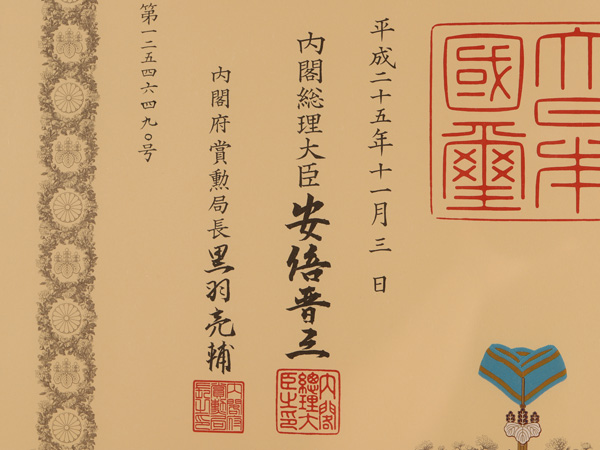 大日本
國璽
平成二十五年十一月三日
内閣総理大臣 安倍晋三
内閣総理大臣之印
内閣府賞勲局長 黒羽亮輔
内閣府賞勲局長之印
第一二五四六四九〇号